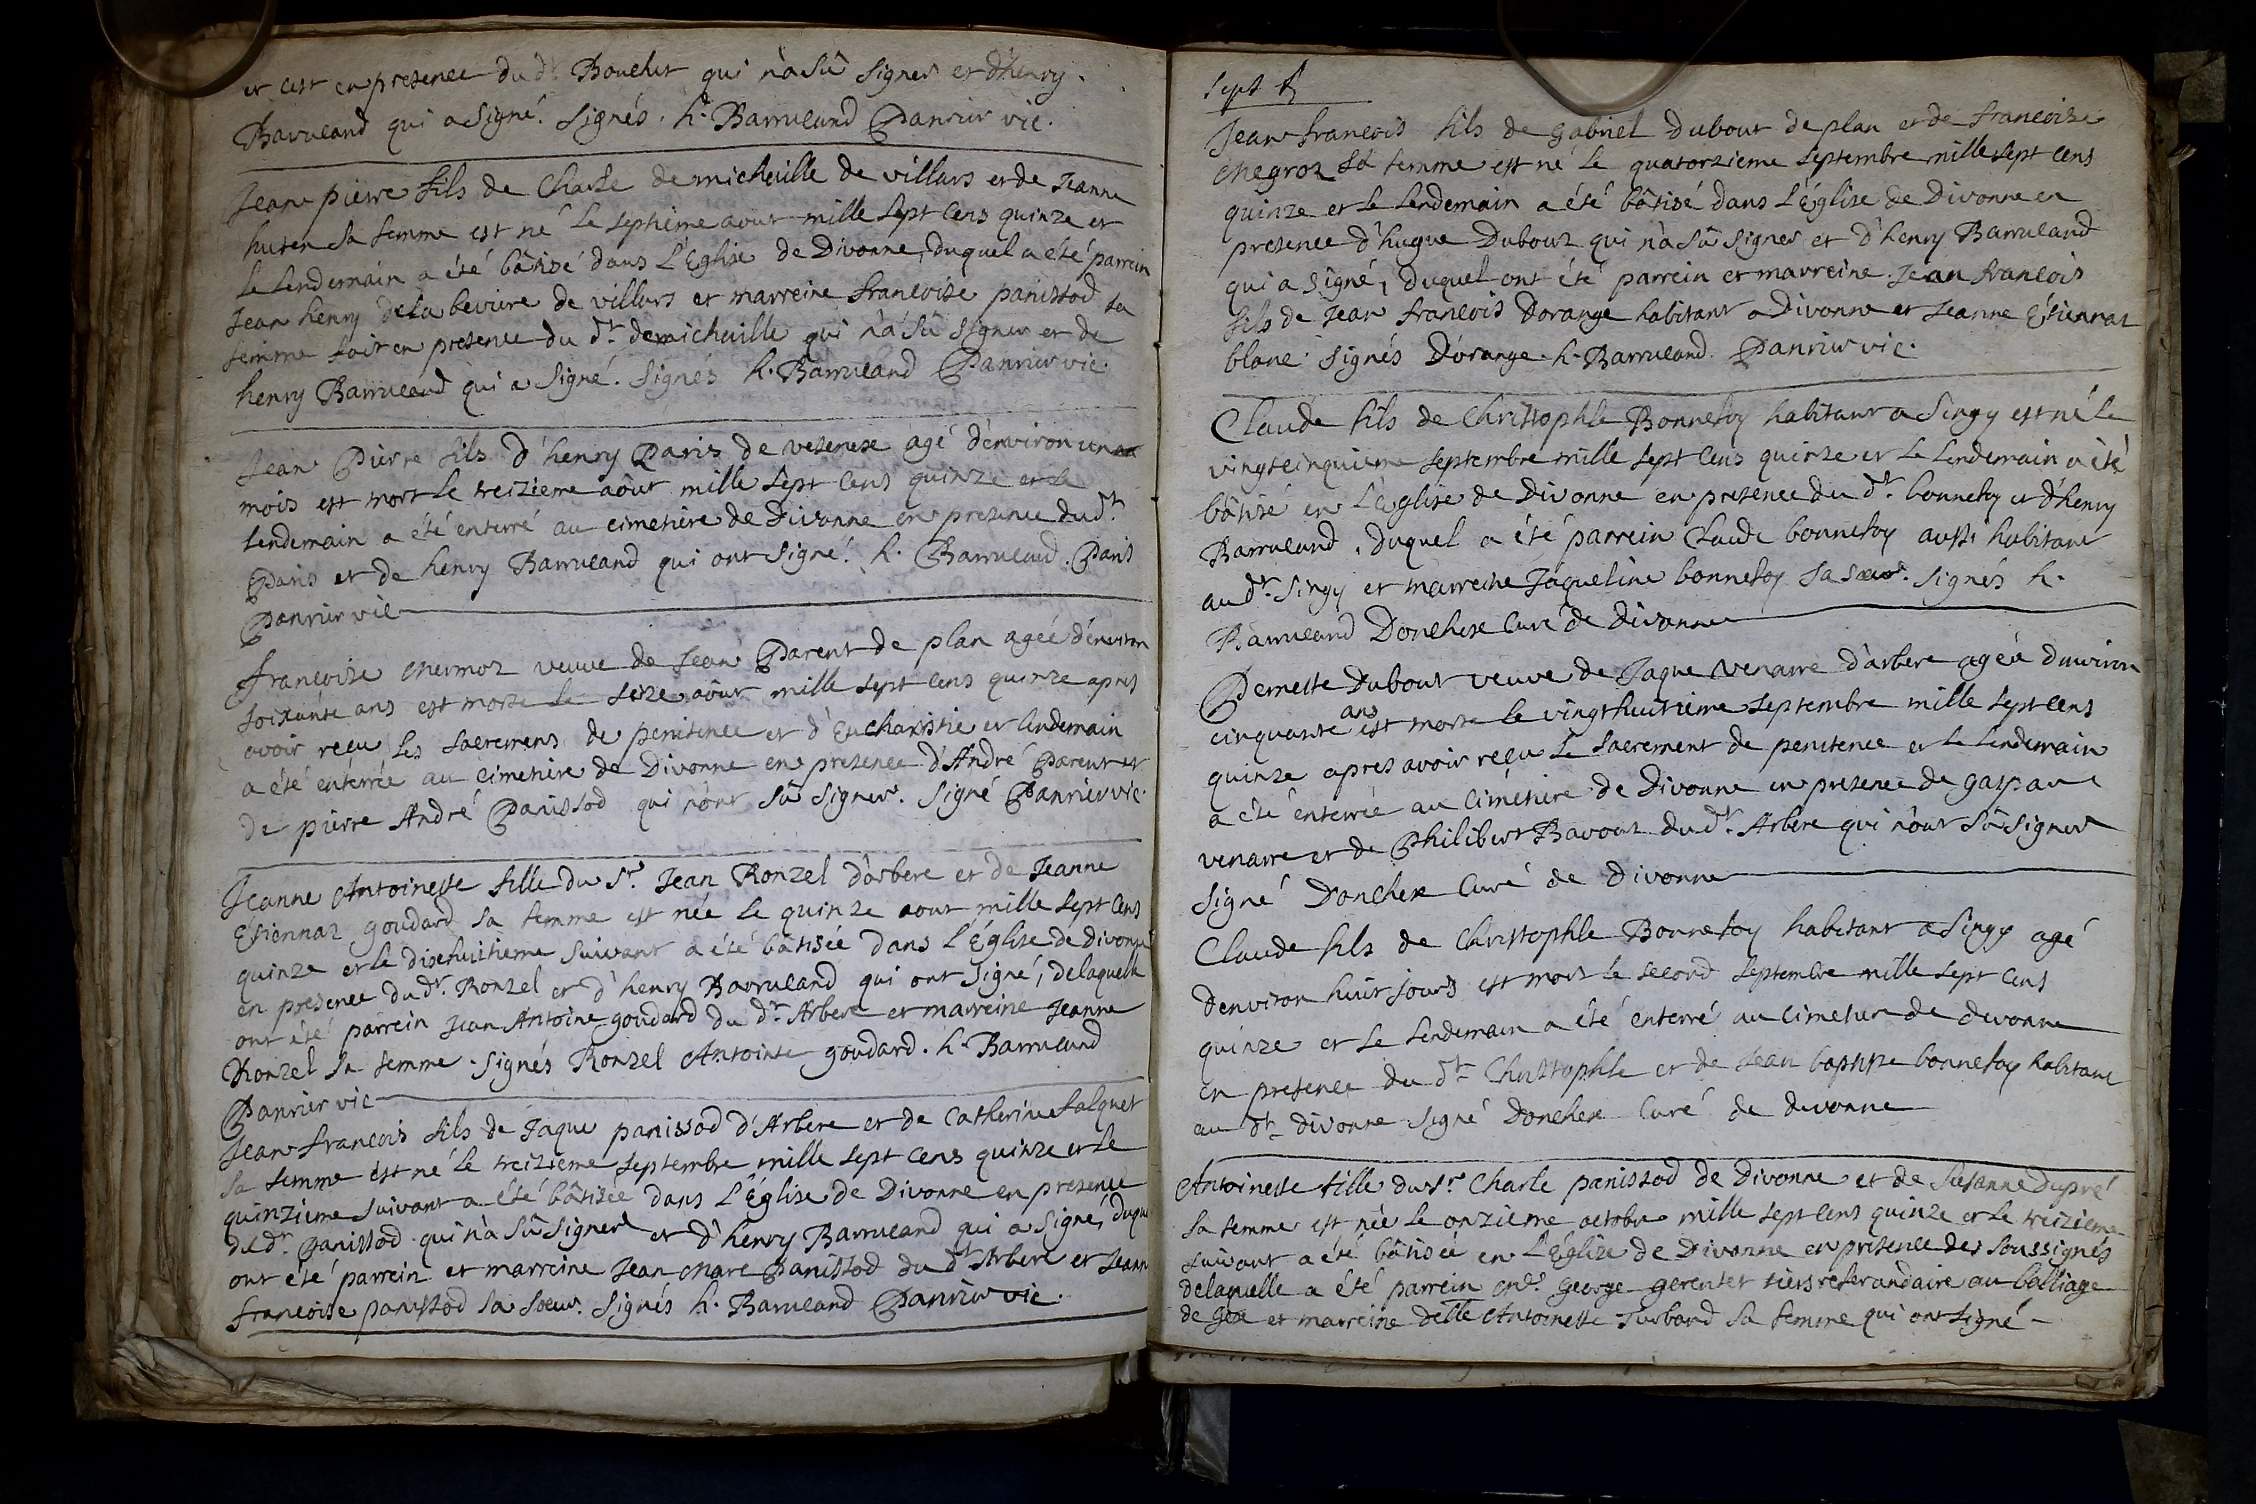 et cest en presence du dt. Bouchet qui n'a sû signer et d'henry
Barrueand qui a signé. Signés. h. Barrueand Panrier vic.
Jean pierre fils de Charle demicheille de villars et de Jeanne
huten sa femme est né le septieme aout mille sept cens quinze et
le lendemain a été bâtisé dans l'Eglise de Divonne, duquel a été parrein
Jean henry dela beviere de villars et marreine francoise panissod sa
femme soit en presence du dt. demicheille qui n'a sû signer et de
henry Barrueand qui a signé. Signés h. Barrueand Panrier vic.
Jean Pierre fils d'henry Paris de vesenex agé d'environ un
mois est mort le treizieme aôut mille sept cens quinze et le
lendemain a été enterré au cimetière de Divonne en presence du dt.
Paris et de henry Barrueand qui ont signé. h. Barrueaud. Paris
Panrier vic
françoise mermoz veuve de Jean Parent de plan ageé d'environ
soixante ans est morte le seize aôut mille sept cens quinze apres
avoir reçu les sacremens de penitence et d'Eucharistie et lendemain
a été enterrée au cimetière de Divonne en presence d'André Parent et
de pierre André Panissod qui n'ont sû signer. Signé Panrier vic.
Jeanne Antoinette fille du Sr. Jean Ronzel d'arbere et de Jeanne
Etiennaz goudard sa femme est née le quinze aout mille sept cens
quinze et le dixehuitieme suivant a été bâtisée dans l'Église de divonne
en presence du dt. Ronzel et d'henry Barruland qui ont signé, delaquelle
ont été parrein Jean Antoine goudard du dt. Arbere et marreine Jeanne
Ronzel sa femme. Signés Ronzel Antointe goudard. h. Barrueand
Panrier vic
Jean françois fils de Jaque panissod d'Arbere et de Catherine falquet
sa femme est né le treizieme septembre mille sept cens quinze et le
quinzieme suivant a été bâtisée dans l'Église de Divonne en presence
du dt. Panissod qui n'a sû signer et d'henry Barrueand qui a signé, duqu
ont été parrein et marreine Jean marc Panissod du dt. Arbere et Jeann
françoise panissod sa soeur. Signés h. Barrueand Panrier vic.
Sept
Jean françois fils de gabriel Dubout de plan et de francoise
megroz sa femme est né le quatorzieme septembre mille sept cens
quinze et le lendemain a été bâtisé dans l'Église de Divonne en
presence d'hugue Dubout qui n'a sû signer et d'henry Barrueand
qui a signé, duquel ont été parrein et marreine Jean françois
fils de Jean françois Dorange habitant a Divonne et Jeanne Étiennaz
blanc. Signés D'orange. h. Barrueand. Panrier vic.
Claude fils de Christophle Bonnefoy habitant a Singy est né le
vingtcinquieme septembre mille sept cens quinze et le lendemain a été
bâtisé en l'Église de Divonne en presence du dt. bonnefoy et d'henry
Barrueand, duquel a été parrein Claude bonnefoy aussi habitant
au dt. Singy et marreine Jaqueline bonnefoy sa sœur. Signés h.
Barrueand Donchex Curé de divonne
Pernette Dubout veuve de Jaque venarre d'arbere ageé d'environ
cinquante ans est morte le vingthuitieme septembre mille sept cens
quinze apres avoir reçu le sacrement de penitence et le lendemain
a été enterrée au Cimetière de Divonne en presence de gaspare
venarre et de Philibert Bavout du dt. Arbere qui n'ont sû signer
Signé Donchex Curé de divonne
Claude fils de Christophle Bonnefoy habitant a Singy agé
denviron huit jours est mort le second septembre mille sept cens
quinze et le lendemain a été enterré au cimetiere de divonne
en presence du dt. Christophle et de Jean baptiste bonnefoy habitant
au dt. divonne signé Donchex Curé de divonne
Antoinette fille du Sr. Charle panissod de Divonne et de Susanne dupré
sa femme est née le onzieme octobre mille sept cens quinze et le treizieme
suivant a été bâtisée en l'Église de Divonne en presence des soussignés
delaquelle a été parrein mr. george gerentet tiers referandaire au balliage
de gex et marreine delle Antoinette Turband sa femme qui ont signé